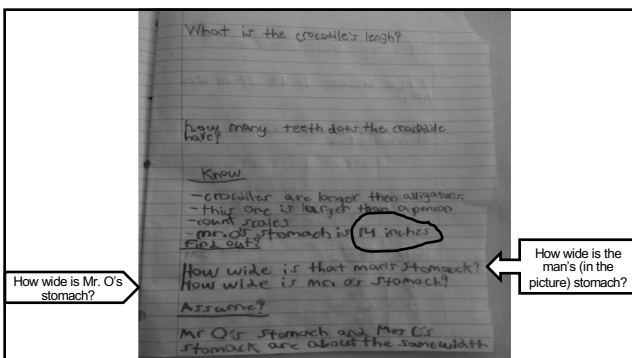 What is the crocodile's lengh?
how many teeth does the crocodile
have?
Know
-crocodiles are longer then alligators.
-this one is larger than a person
-count scales
-mr.o's stomach is 14 inches
Find out?
How wide is that man's stomack?
How wide is mr.o's stomach?
Assume?
Mr O's stomach and Mrs C's
stomack are about the same width
How wide is Mr. O's
stomach?
How wide is the
man's (in the
picture) stomach?